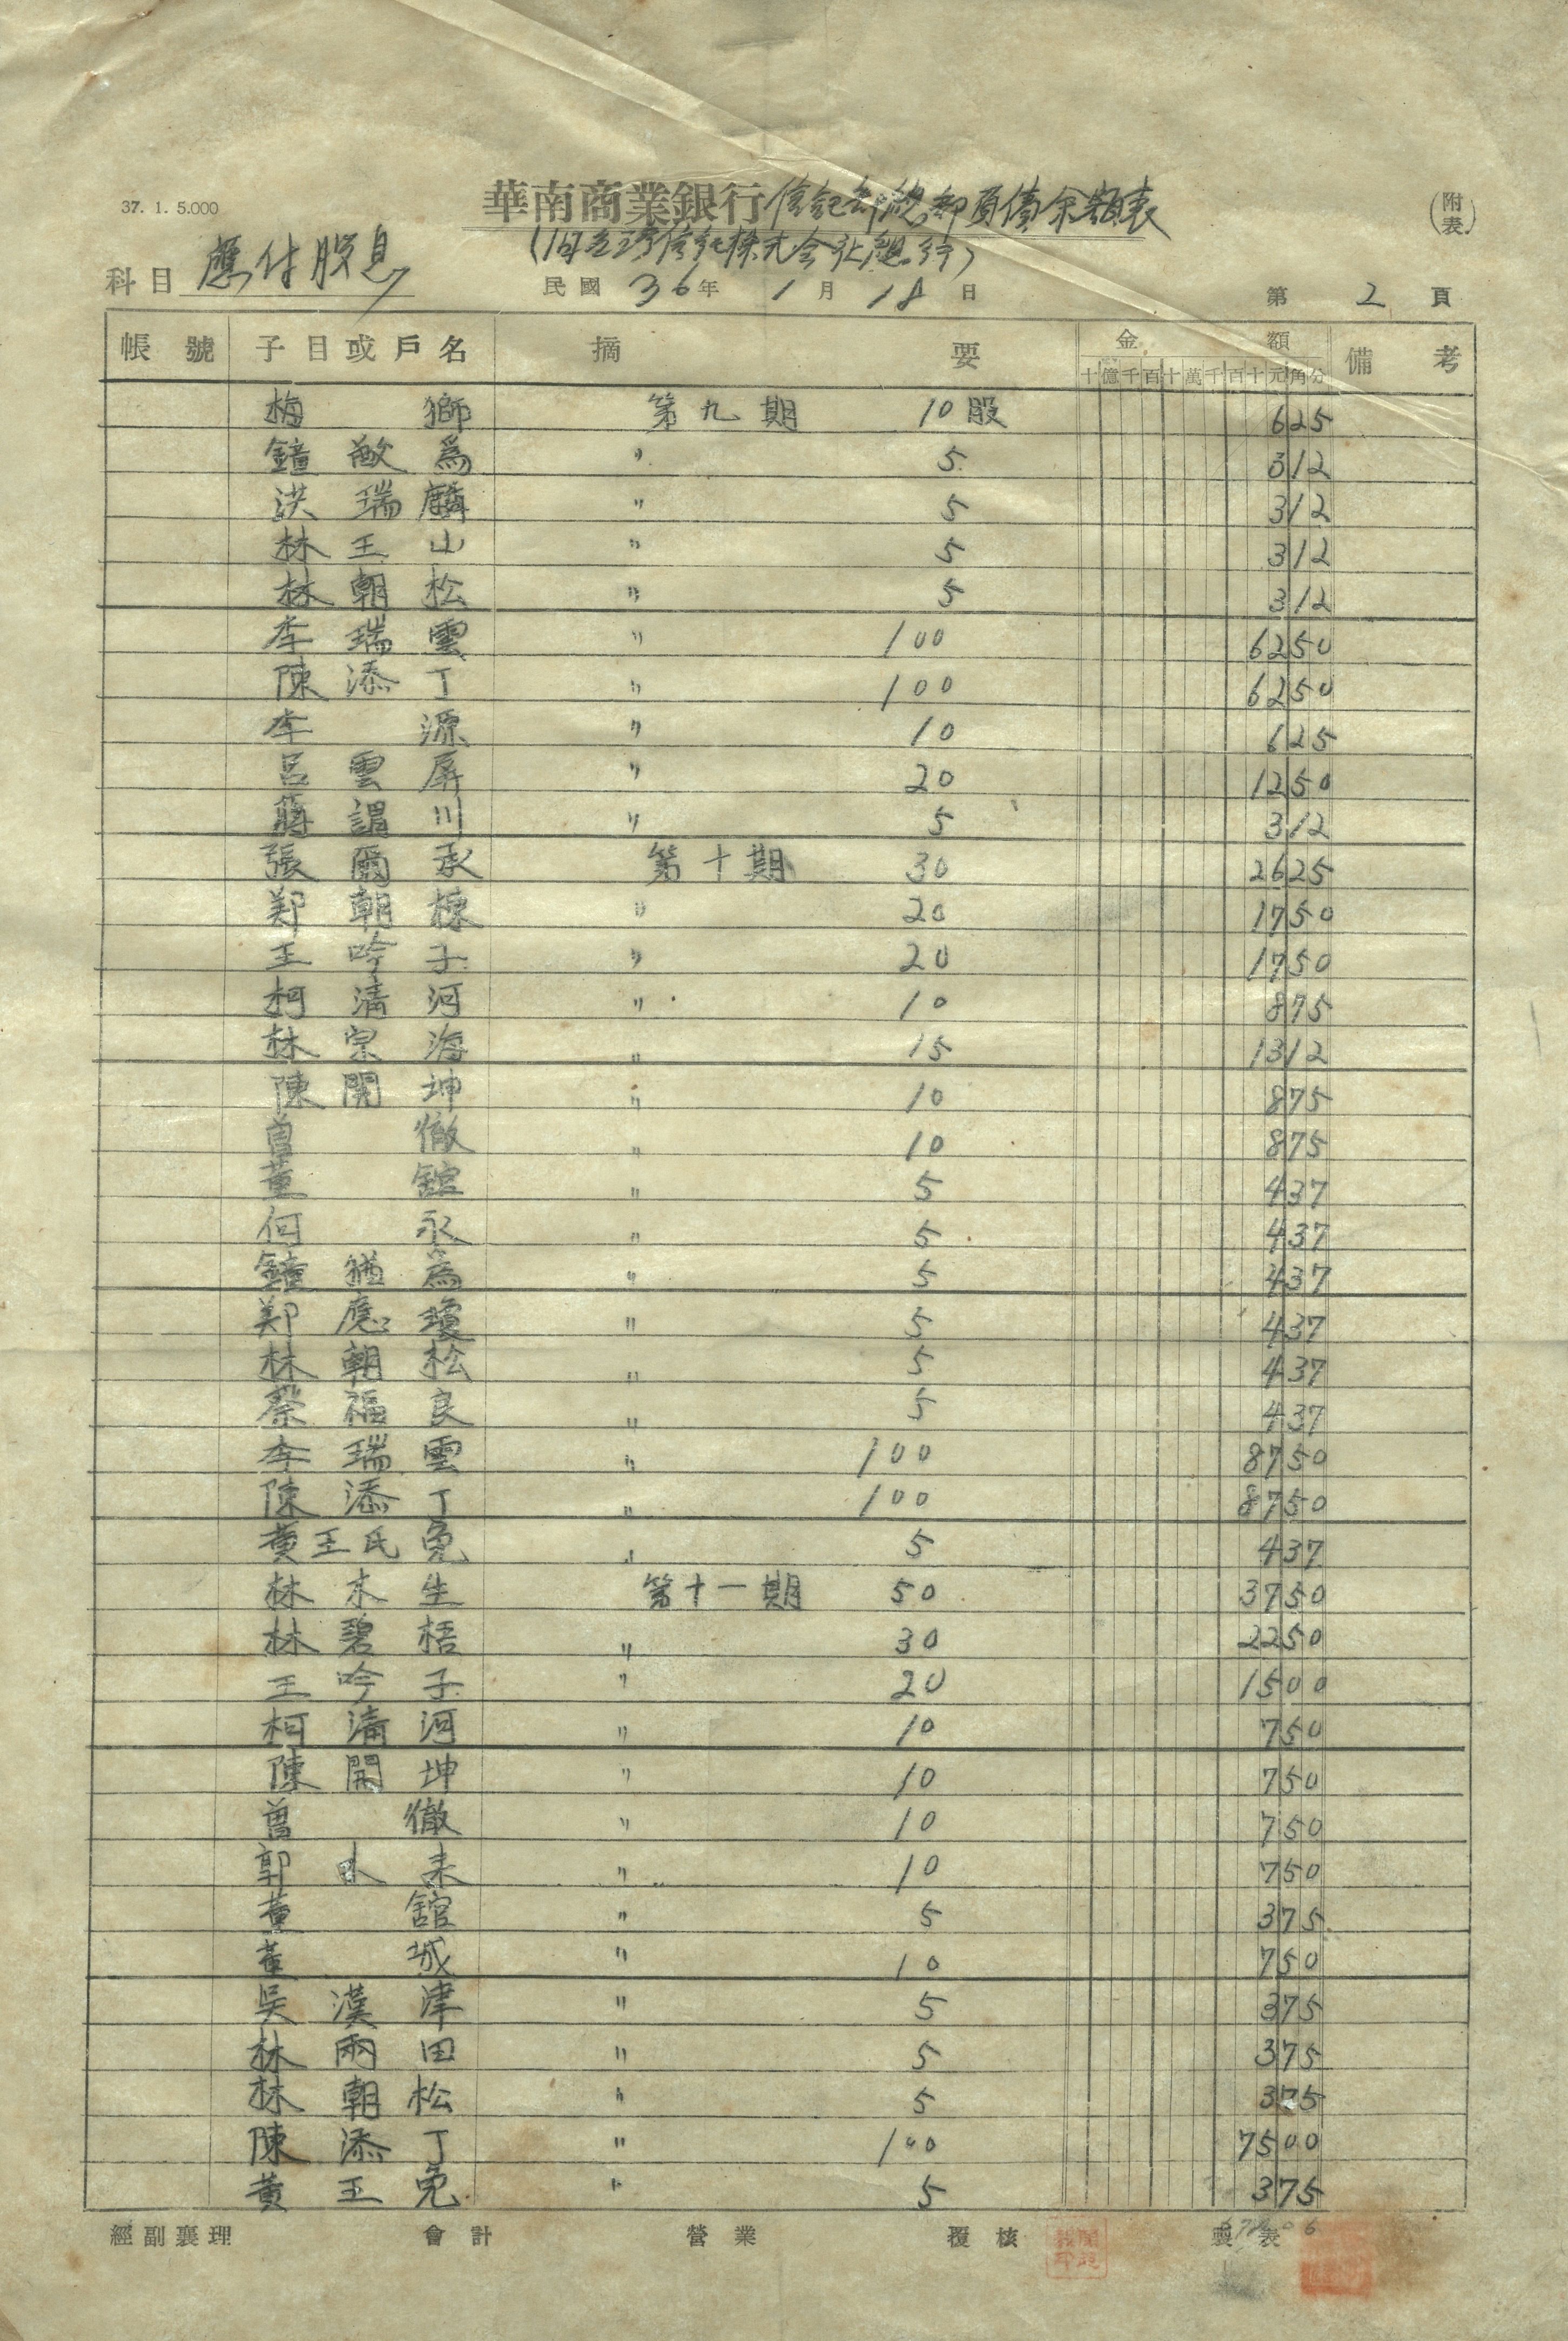 37. 1. 5.000
華南商業銀行信託部總部負債余額表
(附表)
(旧台湾信託株式会社總行)
科目 應付股息
民國 36年 1月 18日
第 2 頁
帳號 子目或戶名 摘要 金額 備考
十億千百十萬千百十元角分
梅 獅 第九期 10股 625
鐘敏為 〃 5 312
洪瑞麟 〃 5 312
林王山 〃 5 312
林朝松 〃 5 312
李瑞雲 〃 100 6250
陳添丁 〃 100 6250
李 源 〃 10 625
呂雲屏 〃 20 1250
蔣謂川 〃 5 312
張爾承 第十期 30 2625
鄭朝棟 〃 20 1750
王吟子 〃 20 1750
柯清河 〃 10 875
林宗海 〃 15 1312
陳開坤 〃 10 875
曾 徹 〃 10 875
董 舘 〃 5 437
何 永 〃 5 437
鐘猶為 〃 5 437
鄭應瓊 〃 5 437
林朝松 〃 5 437
蔡福良 〃 5 437
李瑞雲 〃 100 8750
陳添丁 〃 100 8750
黃王氏兔 〃 5 437
林木生 第十一期 50 3750
林碧梧 〃 30 2250
王吟子 〃 20 1500
柯清河 〃 10 750
陳開坤 〃 10 750
曾 徹 〃 10 750
郭 來 〃 10 750
董 舘 〃 5 375
董 城 〃 10 750
吳漢津 〃 5 375
林雨田 〃 5 375
林朝松 〃 5 375
陳添丁 〃 100 7500
黃王兔 〃 5 375
經副襄理 會計 營業 覆核 製表